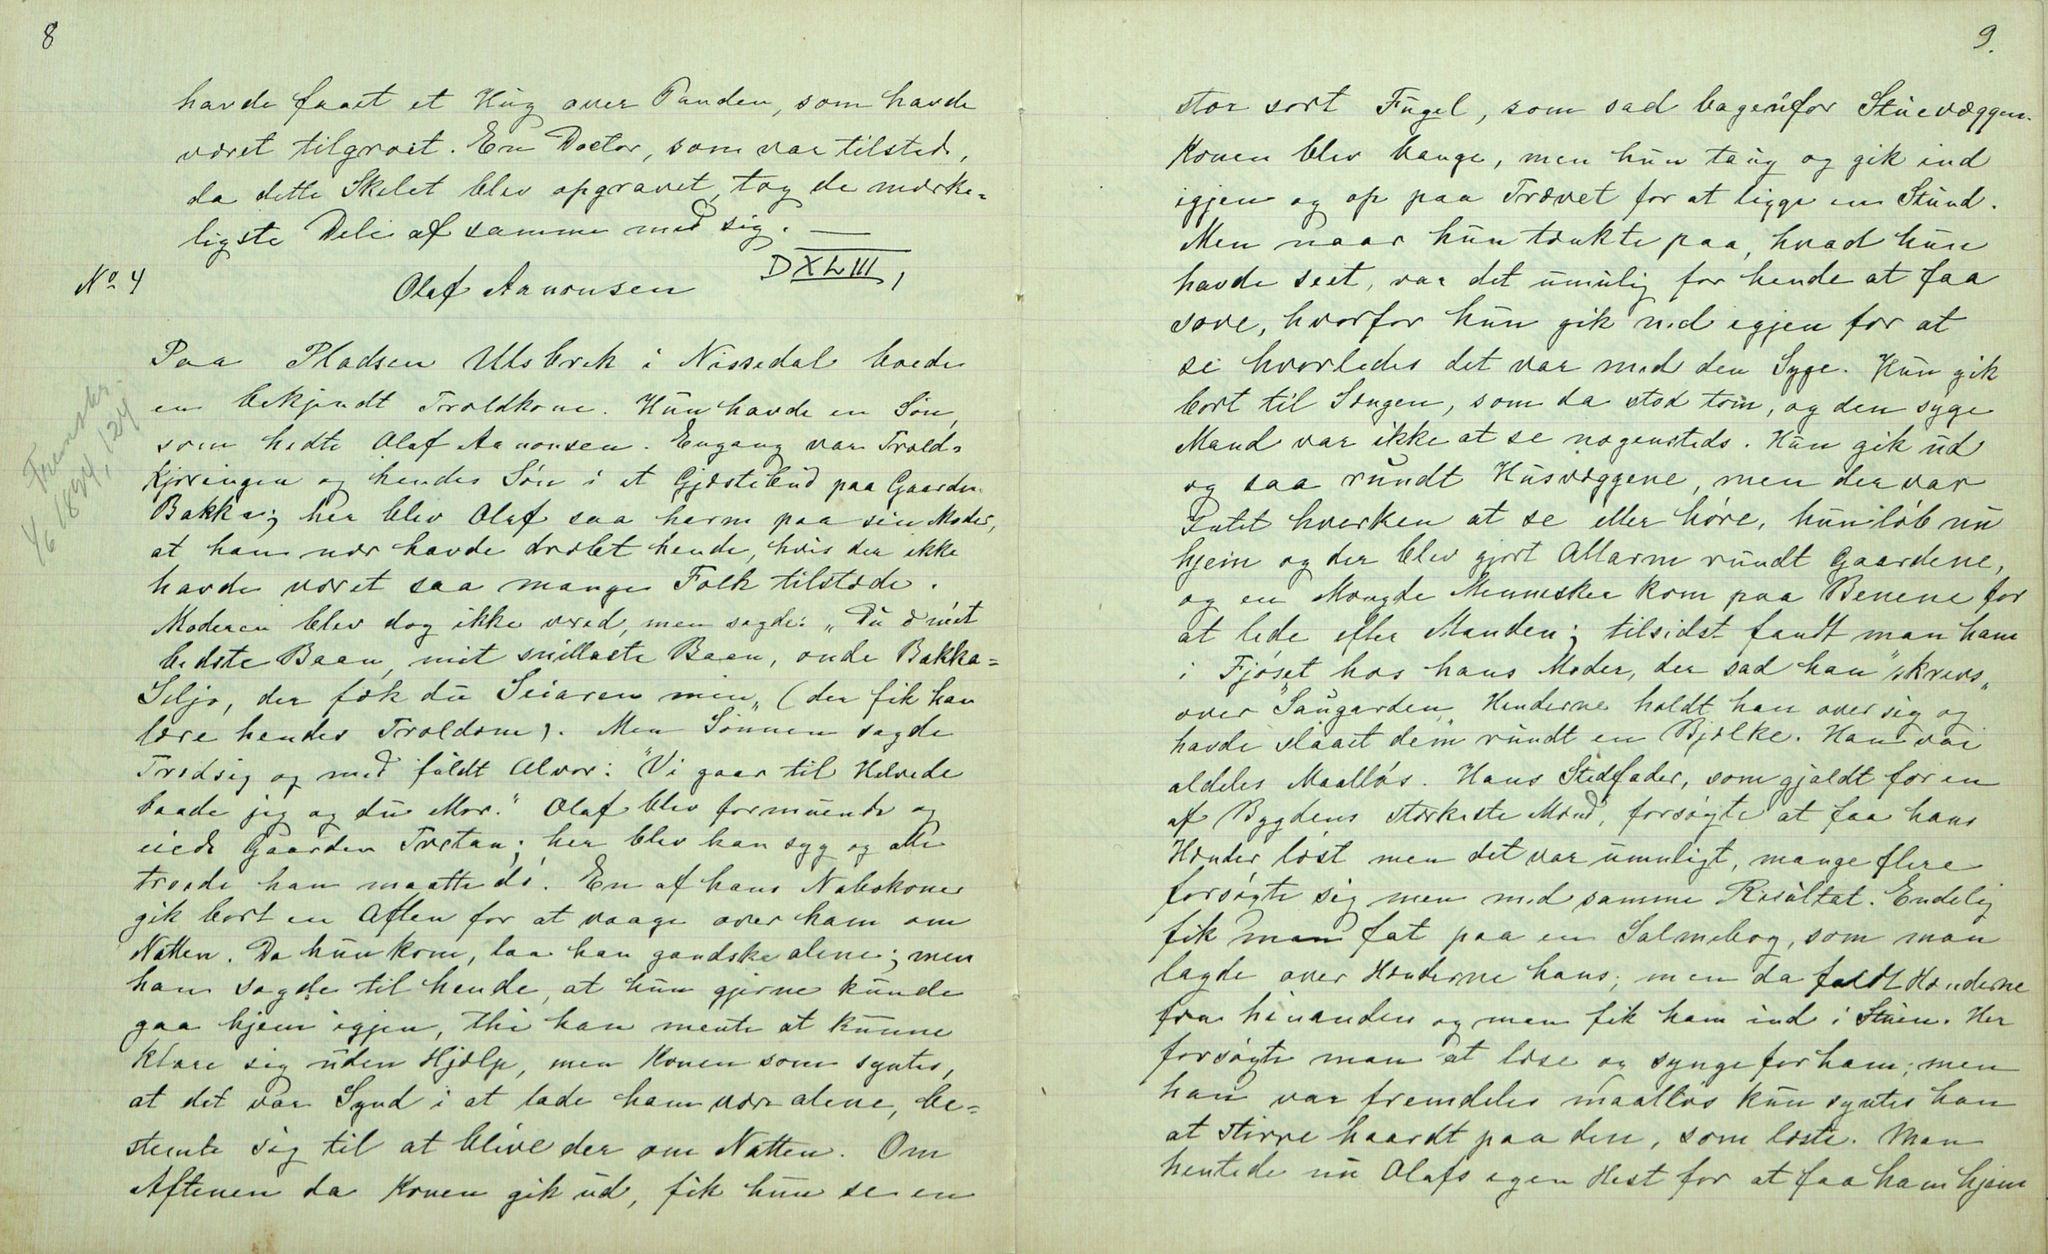 8
havde faaet et Hug over Panden, som havde
været tilgroet. En Doctor, som var tilstede,
da dette Skelet blev opgravet, tog de mærke-
ligste Dele af samme med sig. —
DXLIII,
No 4
Olaf Aanonsen
Paa Pladsen Ulsbrek i Nissedal boede
en bekjendt Troldkone. Hun havde en Søn,
som hedte Olaf Aanonsen. Engang var Trold-
kjerringen og hendes Søn i et Gjæstebud paa Gaarden
Bakka; her blev Olaf saa harm paa sin Moder,
at han nær havde dræbt hende, hvis der ikke
havde været saa mange Folk tilstede.
Moderen blev dog ikke vred, men sagde: „Du æ mit
bedste Baan, mit snillaste Baan, onde Bakka-
Seljo, der fæk du Seiaren min„ (der fik han
lære hendes Troldom). Men Sønnen sagde
Trodsig og med fuldt Alvor: "Vi gaar til Helvede
baade jeg og du Mor." Olaf blev formuende og
eiede Gaarden Tvetan; her blev han syg og alle
troede han maatte dø. En af hans Nabokoner
gik bort en Aften for at vaage over ham om
Natten. Da hun kom, laa han gandske alene; men
han sagde til hende, at hun gjerne kunde
gaa hjem igjen, thi han mente at kunne
klare sig uden Hjælp, men Konen som syntes,
at det var Synd i at lade ham være alene, be-
stemte sig til at blive der om Natten. Om
Aftenen da Konen gik ud, fik hun se en
1/6 1834, 124
9.
stor sort Fugel, som sad bagenfor Stuevæggen.
Konen blev bange, men hun taug og gik ind
igjen og op paa Trævet for at ligge en Stund.
Men naar hun tænkte paa, hvad hun
havde seet, var det umulig for hende at faa
sove, hvorfor hun gik ned igjen for at
se hvorledes det var med den Syge. Hun gik
bort til Sengen, som da stod tom, og den syge
Mand var ikke at se nogensteds. Hun gik ud
og saa rundt Husvæggene, men der var
Intet hverken at se eller høre, hun løb nu
hjem og der blev gjort Allarm rundt Gaardene,
og en Mængde Mennesker kom paa Benene for
at lede efter Manden; tilsidst fandt man ham
i Fjøset hos hans Moder, der sad han "skrevs„
over "Saugarden„ Henderne holdt han over sig og
havde slaaet dem rundt en Bjælke. Han var
aldeles Maalløs. Hans Stedfader, som gjaldt for en
af Bygdens stærkeste Mænd, forsøgte at faa hans
Hænder løst men det var umuligt, mange flere
forsøgte sig men med samme Resultat. Endelig
fik man fat paa en Salmebog, som man
lagde over Hænderne hans; men da faldt Hænderne
fra hinanden og man fik ham ind i Stuen. Her
forsøgte man at læse og synge for ham; men
han var fremdeles maalløs kun syntes han
at stirre haardt paa den, som læste. Man
hentede nu Olafs egen Hest for at faa ham hjem